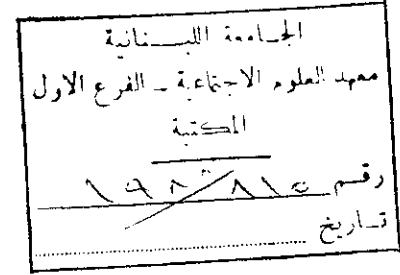 الجامعة اللبنانية
معهد العلوم الاجتماعية - الفرع الاول
المكتبة
رقم
تاريخ